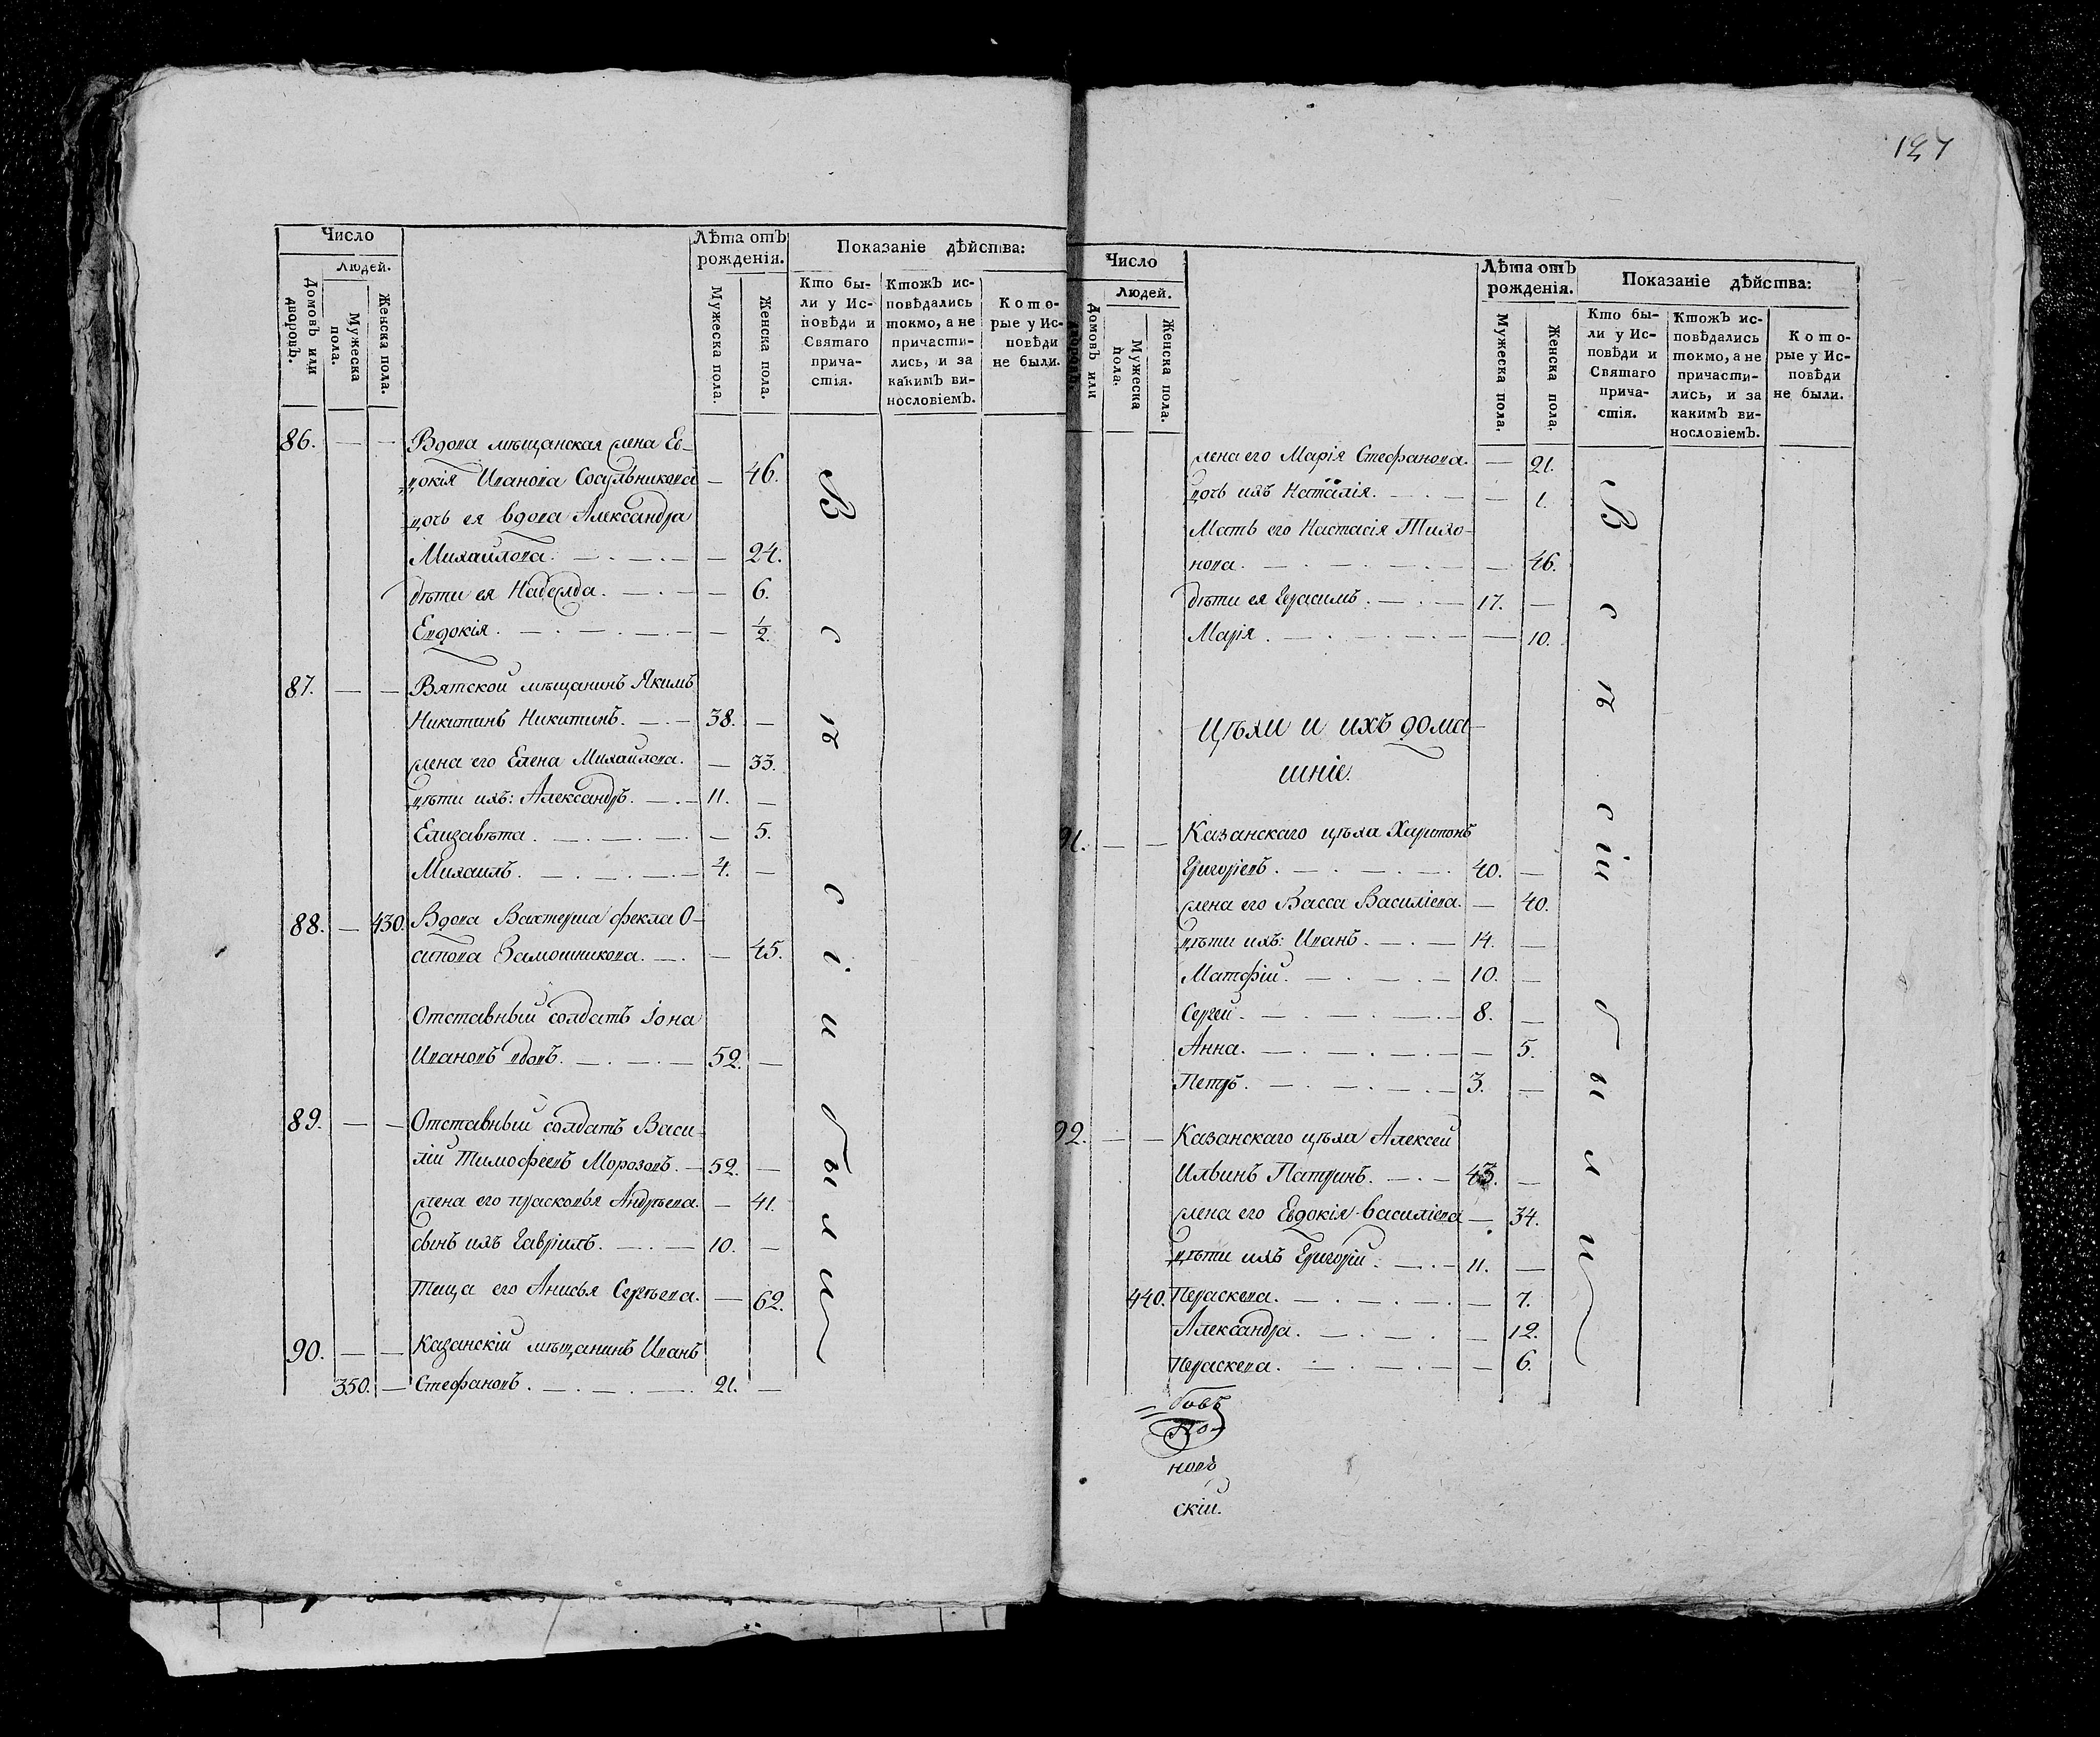 Число
Людей.
Домовъ или дворовъ.
Мужеска пола.
Женска пола.
Лѣта отъ рожденія.
Мужеска пола.
Женска пола.
Показаніе дѣйства:
Кто бы-
ли у Ис-
повѣди и
Святаго
прича-
стія.
Ктожъ ис-
повѣдались
токмо, а не
причасти-
лись, и за
какимъ ви-
нословіемъ.
Кото-
рые у Ис-
повѣди
не были.
86. — — Вдова мѣщанская жена Ев-
докія Иванова Сосульникова — 46.
дочь ея вдова Александра
Михайлова. — 24.
дѣти ея Надежда. — 6.
Евдокія. — 1/2.
87. — — Вятской мѣщанинъ Якимъ
Никитинъ Никитинъ. 38. —
жена его Елена Михайлова. — 33.
дѣти ихъ: Александръ. 11. —
Елизавѣта. — 5.
Михаилъ. 4. —
88. — 430. Вдова Вахтерша Фекла О-
сипова Замошникова. — 45.
Отставный солдатъ Іона
Ивановъ вдовъ. 52. —
89. — — Отставный солдатъ Васи-
лій Тимофеевъ Морозовъ. 52. —
жена его Прасковья Андрѣева. — 41.
сынъ ихъ Гавріилъ. 10. —
Теща его Анисья Сергѣева. — 62.
90. — — Казанскій мѣщанинъ Иванъ
350. — Стефановъ. 21. —
В с ѣ с і и были
197
Число
Людей.
Домовъ или дворовъ.
Мужеска пола.
Женска пола.
Лѣта отъ рожденія.
Мужеска пола.
Женска пола.
Показаніе дѣйства:
Кто бы-
ли у Ис-
повѣди и
Святаго
прича-
стія.
Ктожъ ис-
повѣдались
токмо, а не
причасти-
лись, и за
какимъ ви-
нословіемъ.
Кото-
рые у Ис-
повѣди
не были.
жена его Марія Стефанова. — 21.
дочь ихъ Наталія. — 1.
Мать его Настасія Тихо-
нова. — 46.
дѣти ея Герасимъ. 17. —
Марія. — 10.
Цѣхи и ихъ дома-
шніе.
91. — — Казанскаго цѣха Харитонъ
Григоріевъ. 40. —
жена его Васса Василіева. — 40.
дѣти ихъ: Иванъ. 14. —
Матфій. 10. —
Сергей. 8. —
Анна. — 5.
Петръ. 3. —
92. — — Казанскаго цѣха Алексей
Ильинъ Патринъ. 43. —
жена его Евдокія Василіева — 34.
дѣти ихъ Григорій. 11. —
440. Параскева. — 7.
Александра. — 12.
Параскева. — 6.
В с ѣ сіи были
новъ
скій.